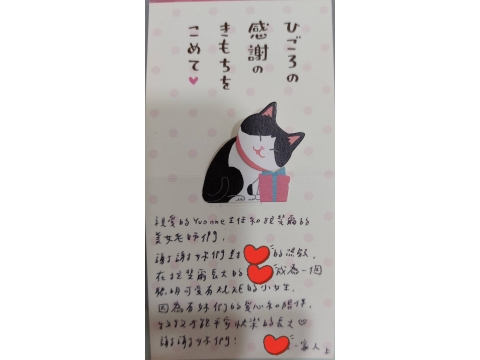 ひごろの
感謝の
きもちを
こめて♥
親愛的Yvonne主任和挖芝爾的
美女老師們,
謝謝妳們對的照顧,
在挖芝爾長大的成為一個
聰明可愛有的小女生.
因為有妳們的愛心和陪伴,
才能平安快樂的長大♡
謝謝妳們!
家人上